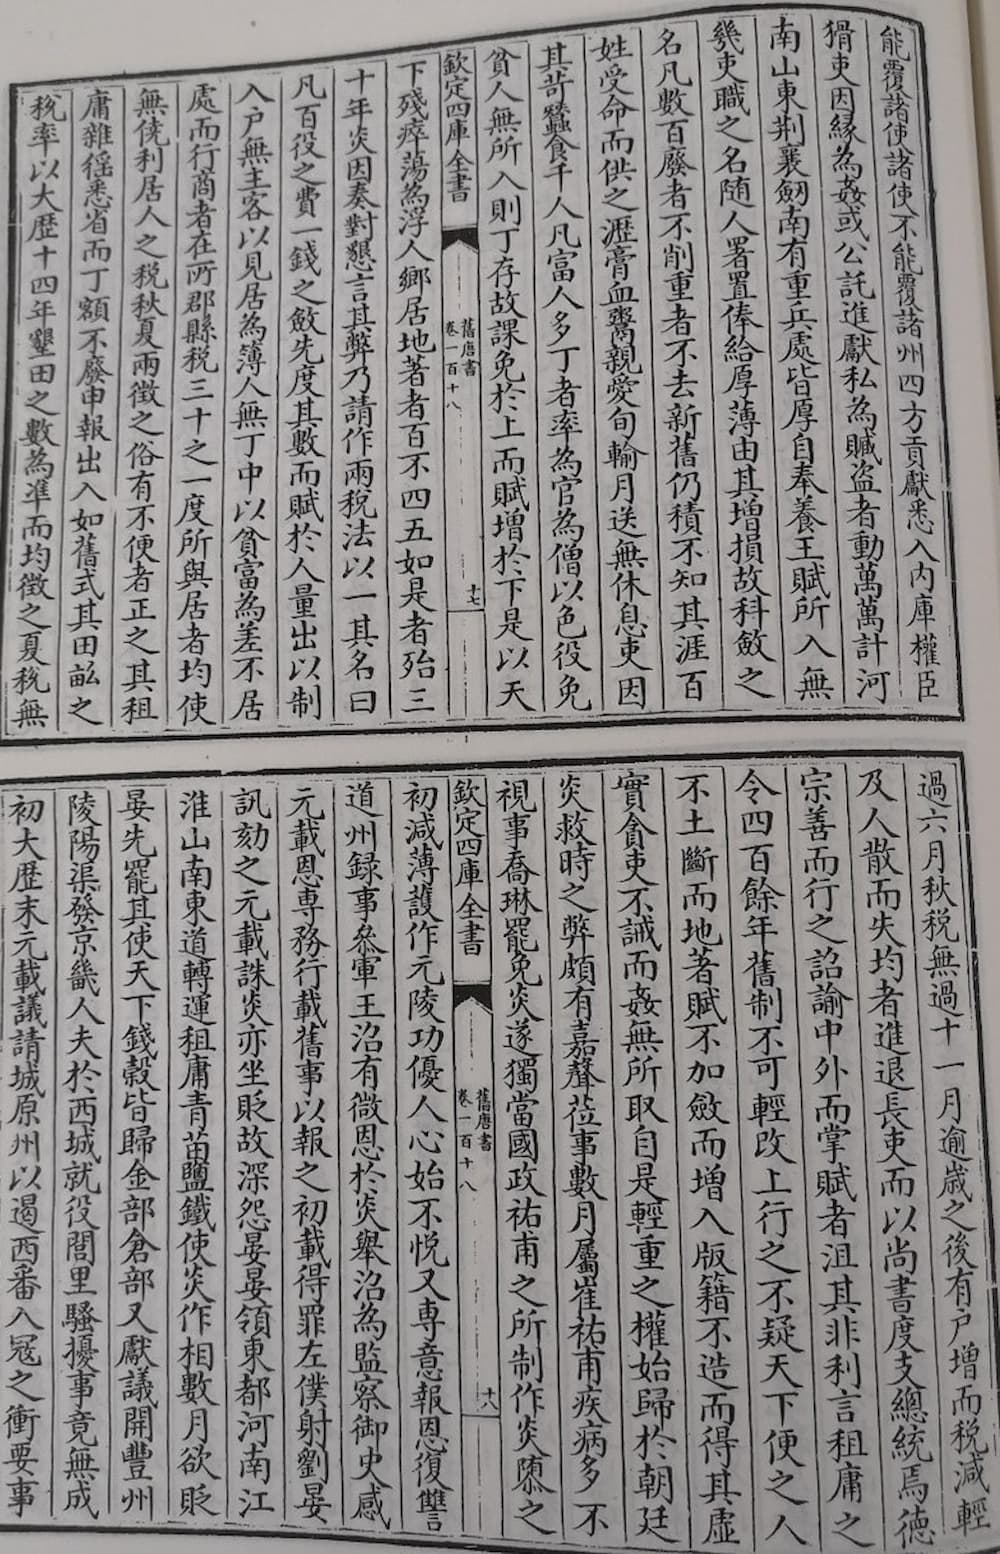 能覆諸使諸使不能覆諸州四方貢獻悉入内庫權臣
猾吏因緣為姦或公託進獻私為贓盜者動萬萬計河
南山東荆襄劒南有重兵處皆厚自奉養王賦所入無
幾吏職之名隨人署置俸給厚薄由其増損故科斂之
名凡數百廢者不削重者不去新舊仍積不知其涯百
姓受命而供之瀝膏血鬻親愛旬輸月送無休息吏因
其苛蠶食千人凡富人多丁者率為官為僧以色役免
貧人無所入則丁存故課免於上而賦增於下是以天
欽定四庫全書
舊唐書
卷一百十八
十七
下殘瘁蕩為浮人鄉居地著者百不四五如是者殆三
十年炎因奏對懇言其弊乃請作兩稅法以一其名曰
凡百役之費一錢之斂先度其數而賦於人量出以制
入户無主客以見居為簿人無丁中以貧富為差不居
處而行商者在所郡縣税三十之一度所與居者均使
無僥利居人之税秋夏兩徵之俗有不便者正之其租
庸雜徭悉省而丁額不廢申報出入如舊式其田畝之
稅率以大歷十四年墾田之數為準而均徵之夏稅無
過六月秋税無過十一月逾歲之後有户增而税減輕
及人散而失均者進退長吏而以尚書度支總統焉德
宗善而行之詔諭中外而掌賦者沮其非利言租庸之
令四百餘年舊制不可輕改上行之不疑天下便之人
不土斷而地著賦不加斂而增入版籍不造而得其虛
實貪吏不誡而姦無所取自是輕重之權始歸於朝廷
炎救時之弊頗有嘉聲莅事數月屬崔祐甫疾病多不
視事喬琳罷免炎遂獨當國政祐甫之所制作炎隳之
欽定四庫全書
舊唐書
卷一百十八
十八
初減薄護作元陵功優人心始不悦又專意報恩復讐
道州録事叅軍王沼有微恩於炎舉沼為監察御史感
元載恩專務行載舊事以報之初載得罪左僕射劉晏
訊劾之元載誅炎亦坐貶故深怨晏晏領東都河南江
淮山南東道轉運租庸青苗鹽鐵使炎作相數月欲貶
晏先罷其使天下錢穀皆歸金部倉部又獻議開豐州
陵陽渠發京畿人夫於西城就役閭里騷擾事竟無成
初大歷末元載議請城原州以遏西番入冦之衝要事